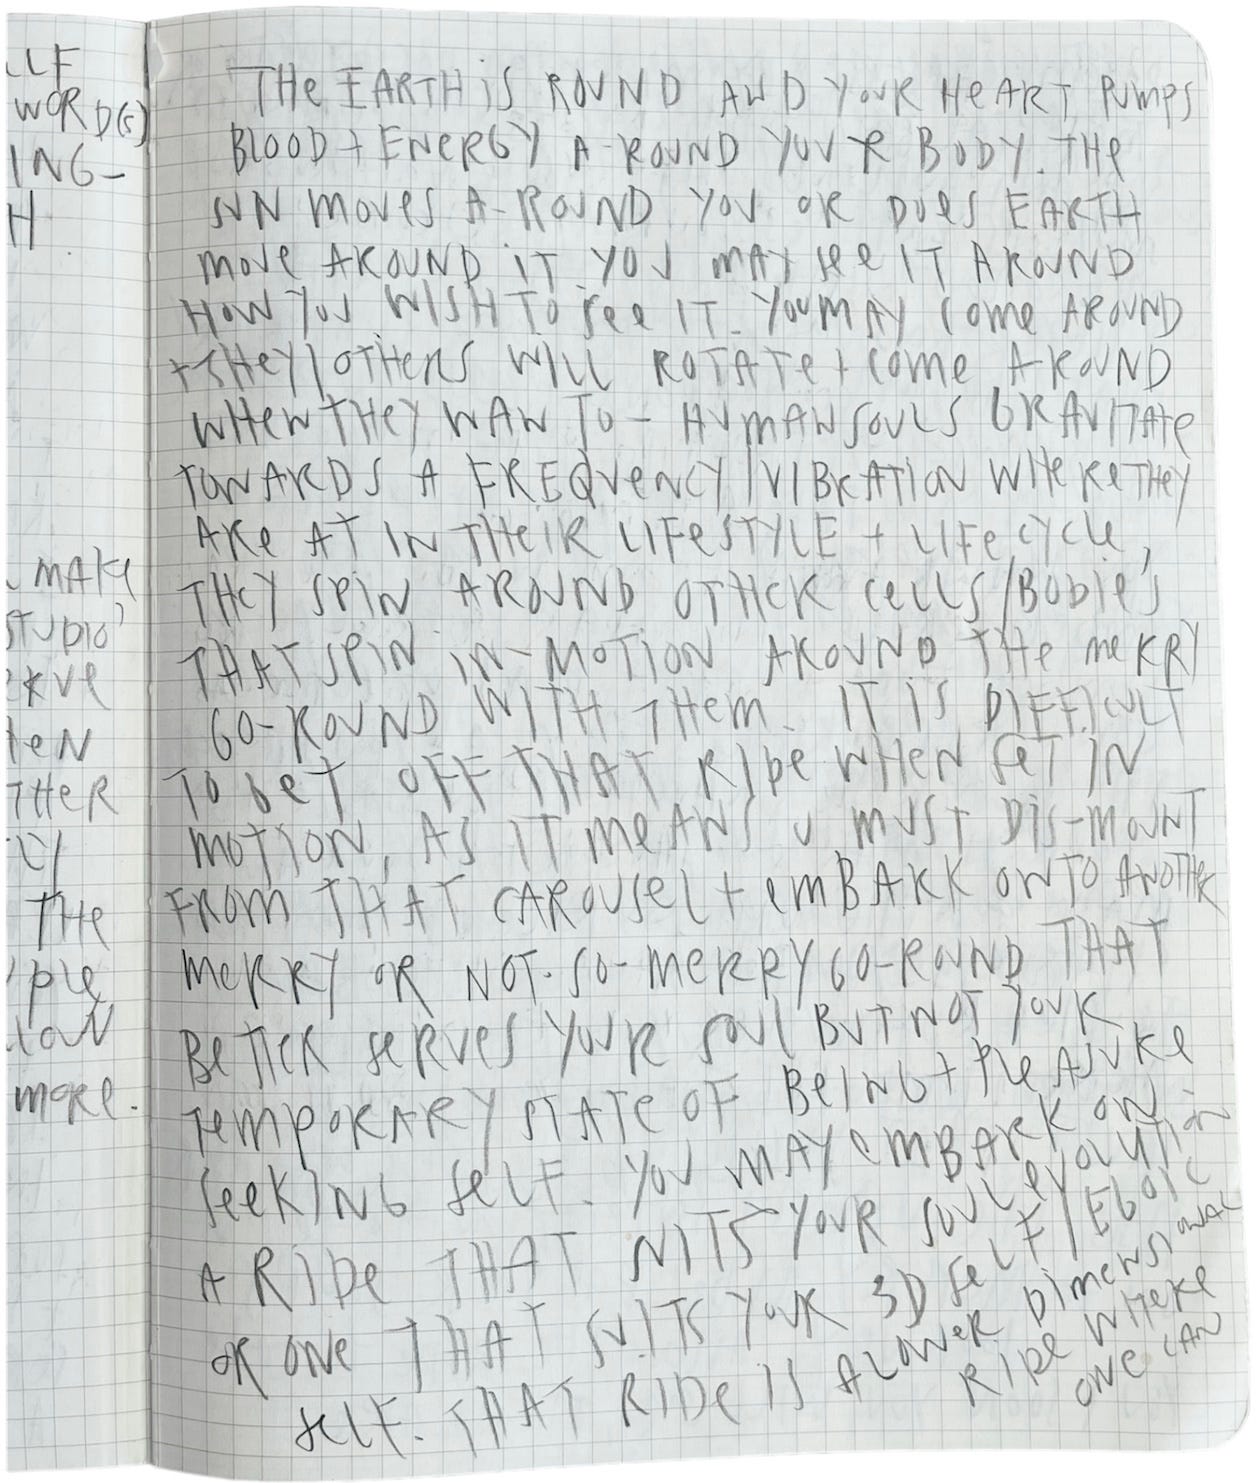 LLF
WORD(S)
ING-
H.
MAKE
STUDIO'
ERVE
TEN
THER
THE
PLE
LOW
MORE.
THE EARTH IS ROUND AND YOUR HEART PUMPS
BLOOD + ENERGY A-ROUND YOUR BODY. THE
SUN MOVES A-ROUND YOU OR DOES EARTH
MOVE AROUND IT. YOU MAY SEE IT AROUND
HOW YOU WISH TO SEE IT. YOU MAY COME AROUND
+ THEY/OTHERS WILL ROTATE + COME AROUND
WHEN THEY WAN TO - HUMAN SOULS GRAVITATE
TOWARDS A FREQUENCY/VIBRATION WHERE THEY
ARE AT IN THEIR LIFESTYLE + LIFE CYCLE,
THEY SPIN AROUND OTHER CELLS/BODIE'S
THAT SPIN IN-MOTION AROUND THE MERRY
GO-ROUND WITH THEM. IT IS DIFFICULT
TO GET OFF THAT RIDE WHEN SET IN
MOTION, AS IT MEANS U MUST DIS-MOUNT
FROM THAT CAROUSEL + EMBARK ONTO ANOTHER
MERRY OR NOT-SO-MERRY GO-ROUND THAT
BETTER SERVES YOUR SOUL BUT NOT YOUR
TEMPORARY STATE OF BEING + PLEASURE
SEEKING SELF. YOU MAY EMBARK ON
A RIDE THAT SUITS YOUR SOUL EVOLUTION
OR ONE THAT SUITS YOUR 3D SELF/EGOIC
SELF. THAT RIDE IS A LOWER DIMENSIONAL
RIDE WHERE
ONE CAN